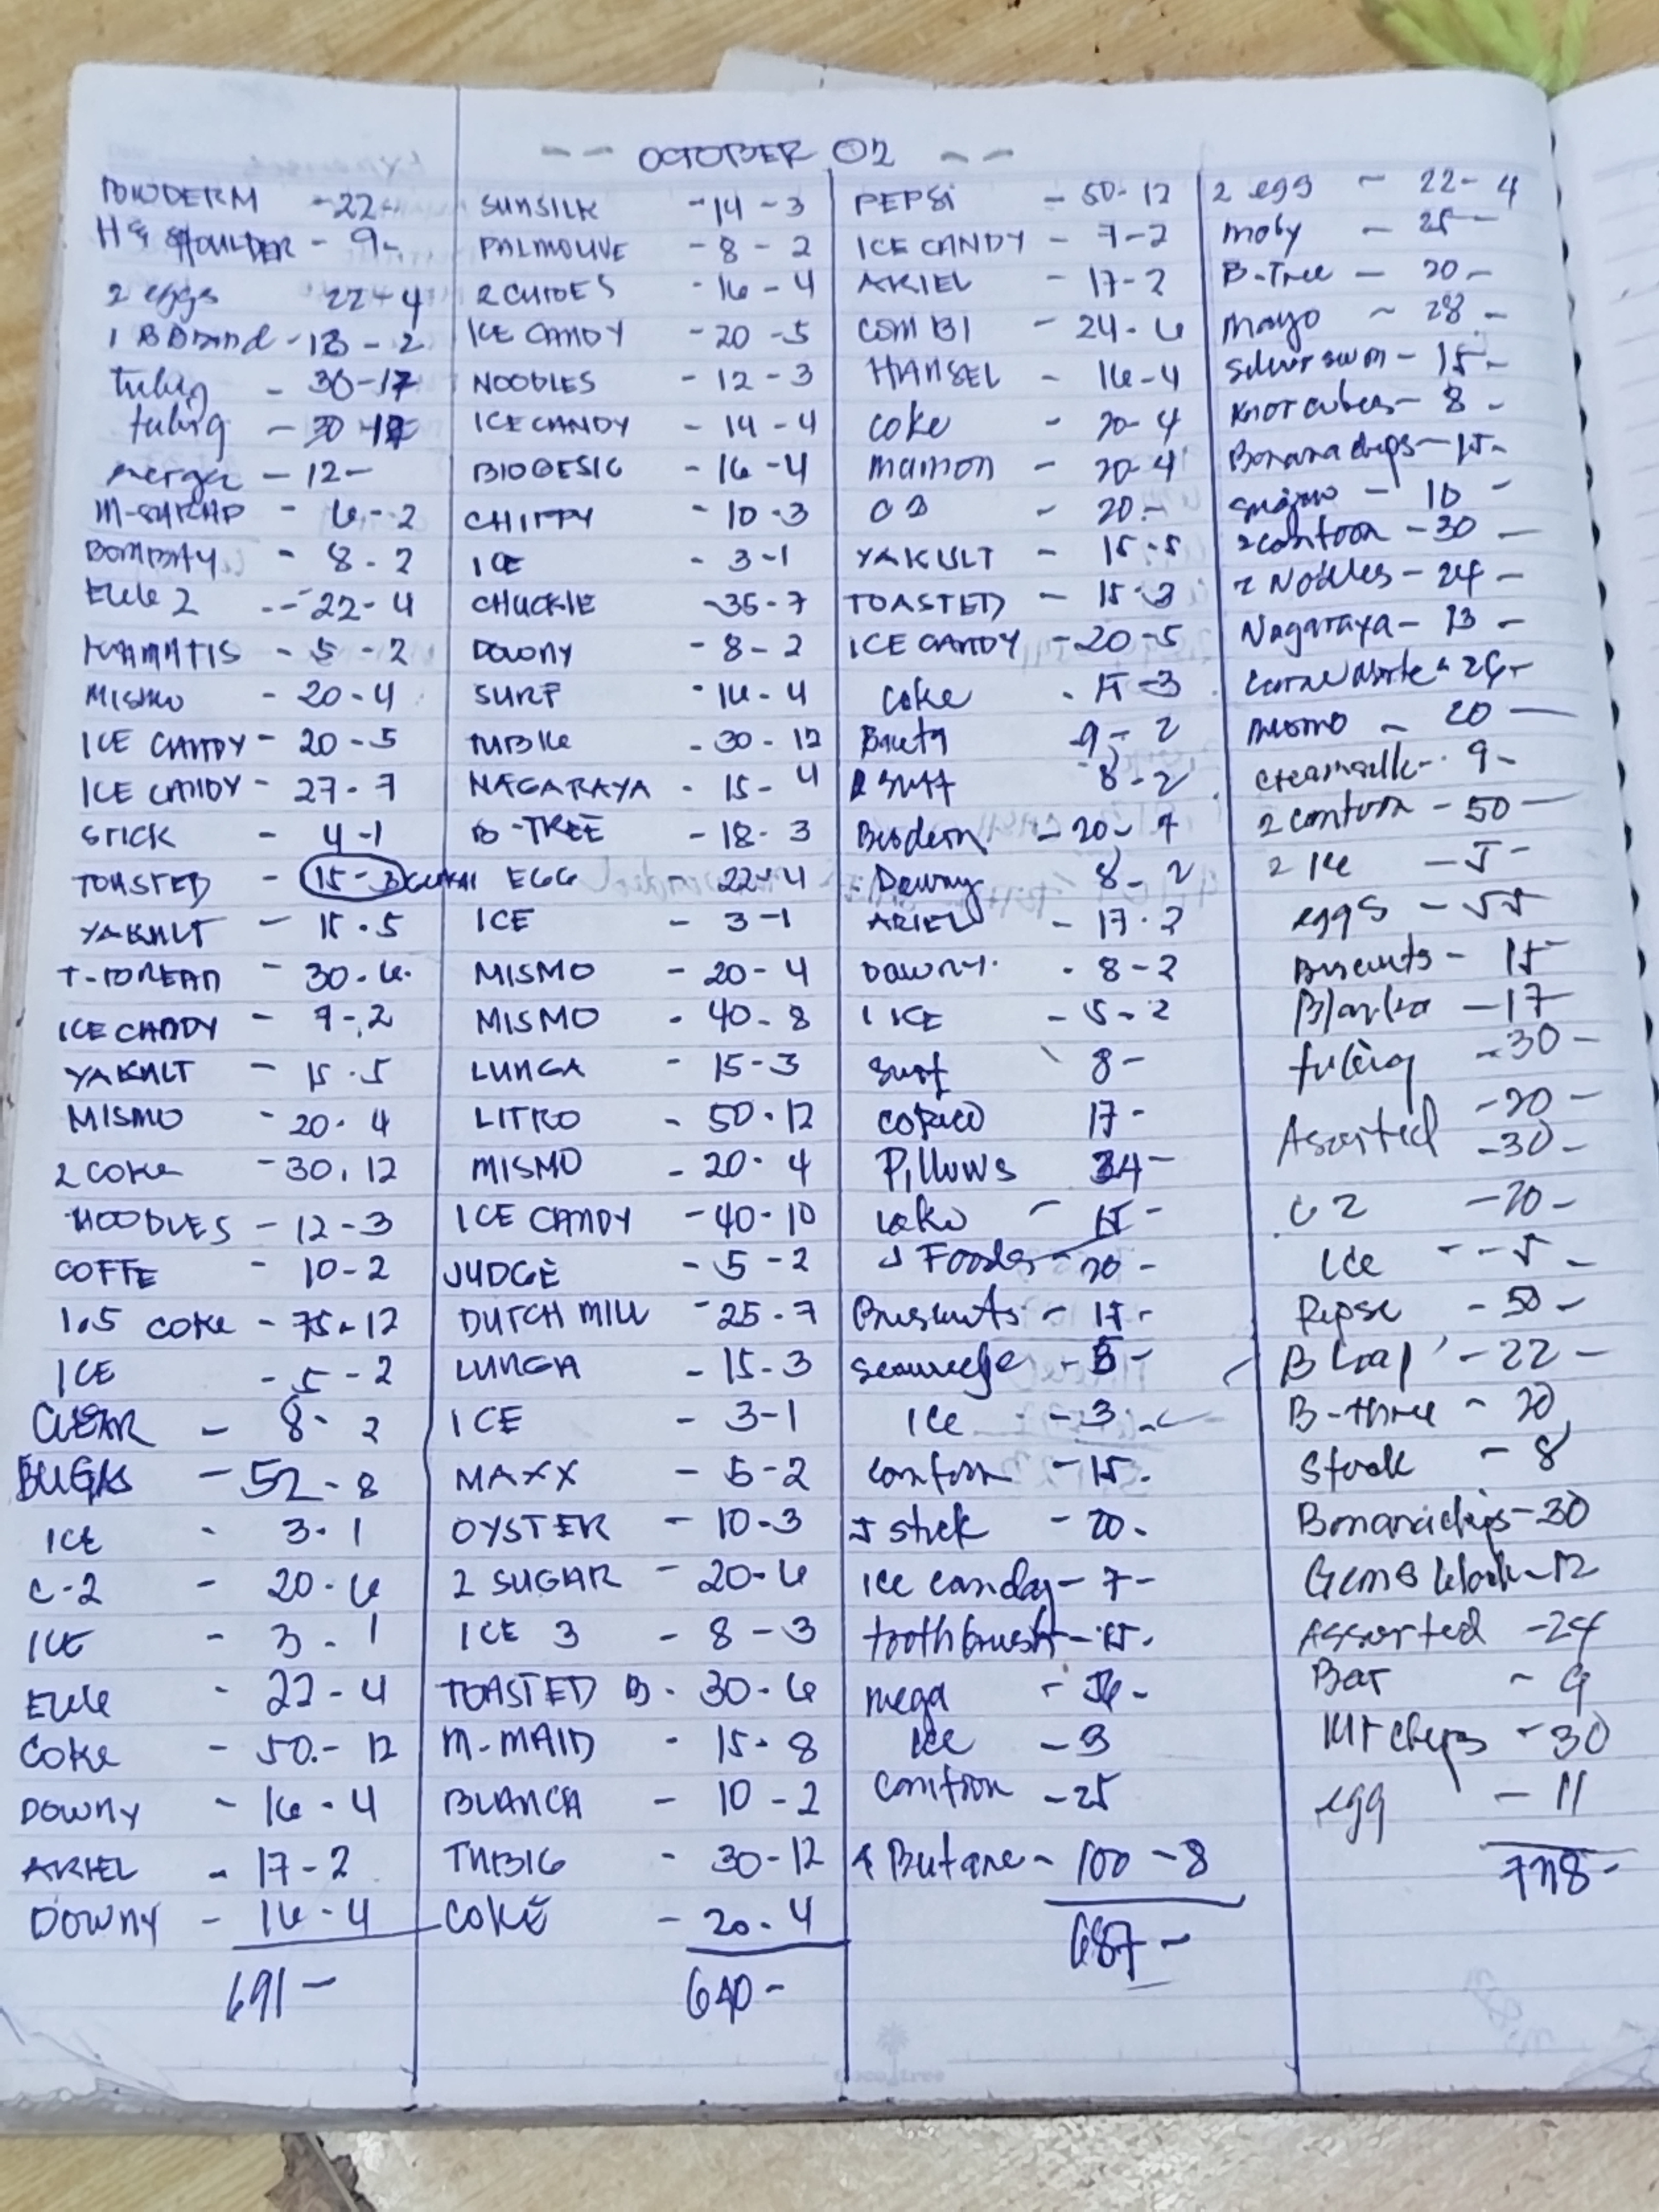 OCTOBER 02
BIODERM - 22 -
H & SHOULDER - 9 -
2 eggs 22-4
1 B Brand - 13 - 2
tubig - 30-12
tubig - 30-12
- 12 -
- 6 - 2
BOMBAY - 8 - 2
22 - 4
KAMATIS - 5 - 2
MISMO - 20 - 4
ICE CANDY - 20 - 5
ICE CANDY - 27 - 7
STICK - 4-1
TOASTED - 15-3
YAKULT - 15 - 5
30 - 6
ICE CANDY - 7 - 2
YAKULT - 15 - 5
MISMO - 20 - 4
2 COKE - 30 - 12
NOODLES - 12 - 3
COFFE - 10 - 2
1.5 COKE - 75 - 12
ICE - 5 - 2
CLEAR - 8 - 2
BUGAS - 52 - 8
ICE - 3 - 1
C-2 - 20 - 6
ICE - 3 - 1
- 22 - 4
COKE - 50 - 12
DOWNY - 16 - 4
ARIEL - 17 - 2
DOWNY - 16 - 4
691 -
SUNSILK - 14 - 3
PALMOLIVE - 8 - 2
- 16 - 4
ICE CANDY - 20 - 5
NOODLES - 12 - 3
ICE CANDY - 14 - 4
BIOGESIC - 16 - 4
CHIPPY - 10 - 3
ICE - 3 - 1
CHUCKIE - 35 - 7
DOWNY - 8 - 2
SURF - 16 - 4
- 30 - 12
NAGARAYA - 15 - 4
B-TREE - 18 - 3
EGG - 22 - 4
ICE - 3 - 1
MISMO - 20 - 4
MISMO - 40 - 8
LUNGA - 15 - 3
LITRO - 50 - 12
MISMO - 20 - 4
ICE CANDY - 40 - 10
JUDGE - 5 - 2
DUTCH MILL - 25 - 7
LUNGA - 15 - 3
ICE - 3 - 1
MAXX - 5 - 2
OYSTER - 10 - 3
2 SUGAR - 20 - 6
ICE 3 - 8 - 3
TOASTED B - 30 - 6
M-MAID - 15 - 8
BLANCA - 10 - 2
TUBIG - 30 - 12
COKE - 20 - 4
640 -
PEPSI - 50 - 12
ICE CANDY - 7 - 2
ARIEL - 17 - 2
COMBI - 24 - 6
HANSEL - 16 - 4
Coke - 20 - 4
mamon - 20 - 4
- 20 -
YAKULT - 15 - 5
TOASTED - 15 - 3
ICE CANDY - 20 - 5
Coke - 15 - 3
9 - 2
Surf 8 - 2
Bioderm - 20 - 7
Downy 8 - 2
ARIEL - 17 - 2
DOWNY - 8 - 2
1 ICE - 5 - 2
Surf 8 -
17 -
Pillows 24 -
- 15 -
Foods - 20 -
- 15 -
- 5 -
Ice - 3 -
- 15 -
stick - 20 -
Ice canday - 7 -
toothbrush - 15 -
mega -
Ice - 3
- 25
4 Butane - 100 - 8
687 -
2 egg - 22 - 4
moby - 25 -
B-Tree - 20 -
mayo - 28 -
Silver swan - 15 -
knorr cubes - 8 -
Banana chips - 15 -
- 10 -
- 30 -
2 Nodles - 24 -
Nagaraya - 13 -
- 20 -
creamsilk - 9 -
- 50 -
2 ICE - 5 -
eggs - 55
Biscuits - 15
Blanka - 17
tubig - 30 -
Assorted - 20 -
- 30 -
C2 - 20 -
Ice - 5 -
Pepse - 50 -
B Loaf - 22 -
B-three - 20
Stock - 8
Bananachips - 30
- 12
Assorted - 24
Bar - 9
- 30
egg - 11
778 -
Cocotree